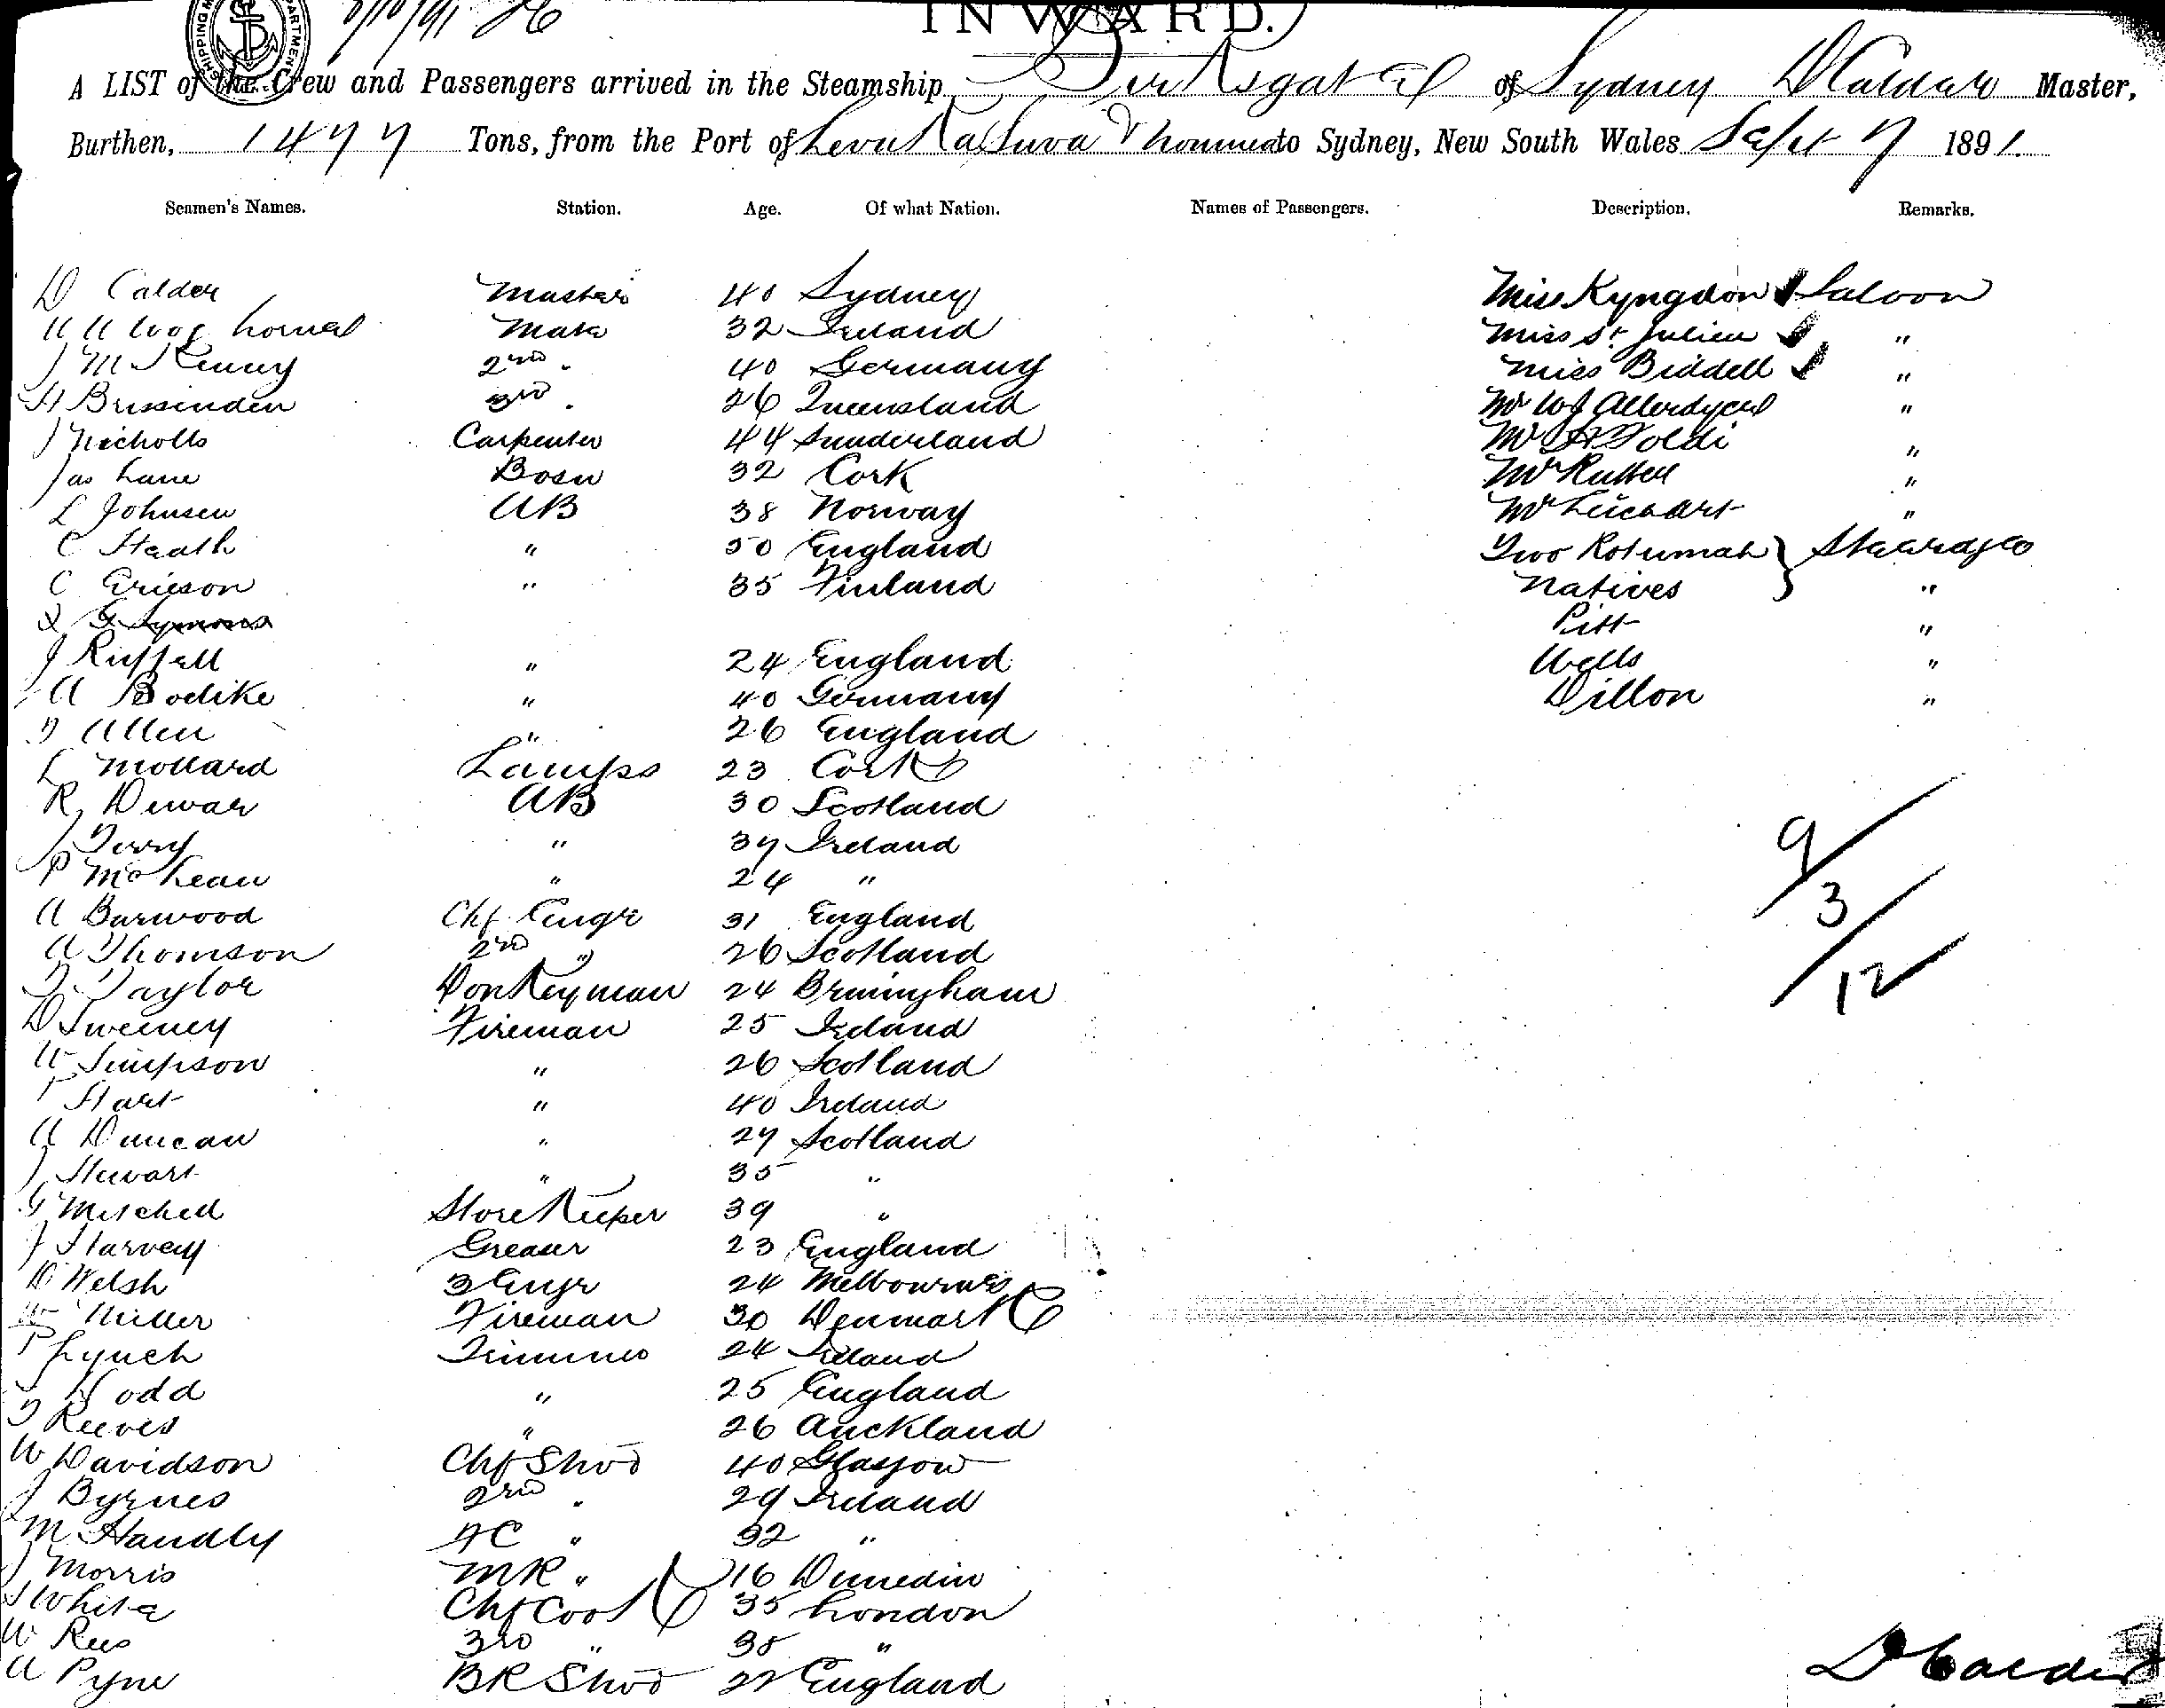 SHIPPING M DEPARTMENT
INWARD.
A LIST of the Crew and Passengers arrived in the Steamship of Sydney D Calder Master,
Burthen, 1477 Tons, from the Port of Levuka Suva & to Sydney, New South Wales Sept 7 1891.
Seamen's Names. Station. Age. Of what Nation. Names of Passengers. Description. Remarks.
D Calder Master 40 Sydney Miss Kyngdon Saloon
Mate 32 Ireland Miss St Julien "
J M Kenny 2nd " 40 Germany Miss Biddell "
H Brissenden 3rd " 26 Queensland Mr W J Allerdyce "
J Nicholls Carpenter 44 Sunderland Mr "
Jas Lane Bosn 32 Cork Mr "
L Johnsen AB 38 Norway Mr "
C Heath " 50 England Two Rotumah } Steerage
C Ericson " 35 Finland Natives "
Symons Pitt "
J Russell " 24 England Wells "
A Boelike " 40 Germany Dillon "
T Allen " 26 England
L Mollard Lamps 23 Cork
R Dewar AB 30 Scotland
J Terry " 37 Ireland
P McLean " 24 "
A Burwood Chf Engr 31 England
A Thomson 2nd " 26 Scotland
T Taylor Donkeyman 24 Brmingham
D Sweeney Fireman 25 Ireland
W Simpson " 26 Scotland
P Hart " 40 Ireland
A Duncan " 27 Scotland
J Stewart " 35 "
G Mitchell Storekeeper 39 "
J Harvey Greaser 23 England
D Welsh 3 Engr 24 Melbourne
W Miller Fireman 30 Denmark
P Lynch Trimmer 24 Ireland
T Dodd " 25 England
T Reeves " 26 Auckland
W Davidson Chf Stwd 40 Glasgow
J Byrnes 2nd " 29 Ireland
M Handly FC " 32 "
J Morris MR " 16 Dunedin
J White Chf Cook 35 London
W Rees 3rd " 38 "
A Pyne BR Stwd 22 England
9/3/12
D Calder